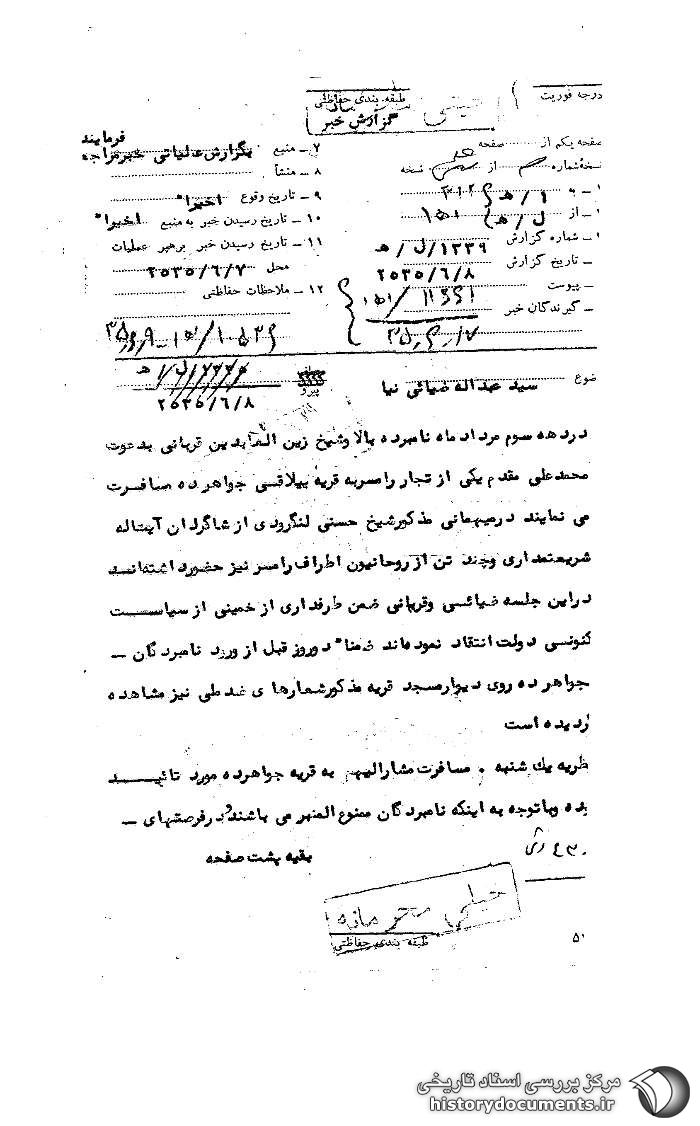 درجه فوریت
طبقه بندی حفاظتی
خیلی
گزارش خبر
صفحه یکم از صفحه
نسخه شماره از نسخه
۱ / ه ۳۱۲
از ل / ه ۱۵۱
شماره گزارش ۱۲۳۹/ل / ه
تاریخ گزارش ۲۵۳۵/۶/۸
پیوست
گیرندگان خبر
۷ - منبع بگزارش عملیاتی خبر مراجه
فرمایند
۸ - منشأ
۹ - تاریخ وقوع اخیرا"
۱۰ - تاریخ رسیدن خبر به منبع اخیرا"
۱۱ - تاریخ رسیدن خبر برهبر عملیات
محل ۲۵۳۵/۶/۷
۱۲ - ملاحظات حفاظتی
ضوع سید عبداله ضیائی نیا
پیرو
۲۵۳۵/۶/۸
در دهه سوم مرداد ماه نامبرده بالا وشیخ زین العابدین قربانی بدعوت
محمد علی مقدم یکی از تجار رامسر به قریه ییلاقی جواهر ده مسافرت
می نمایند در میهمانی مذکور شیخ حسنی لنگرودی از شاگردان آیتاله
شریعتمداری وچند تن از روحانیون اطراف رامسر نیز حضور داشتهاند
در این جلسه ضیائی وقربانی ضمن طرفداری از خمینی از سیاست
کنونی دولت انتقاد نموده‌اند ضمنا" دو روز قبل از ورود نامبردگان –
جواهر ده روی دیوار مسجد قریه مذکور شعارهای ضد ملی نیز مشاهده
ردیده است
ظریه یك شنبه . مسافرت مشارالیهم به قریه جواهرده مورد تائید
بده وباتوجه به اینکه نامبردگان ممنوع المنبر می باشند در فرصتهای –
بقیه پشت صفحه
خیلی محرمانه
طبقه بندی حفاظتی
۵۰
مرکز بررسی اسناد تاریخی
historydocuments.ir